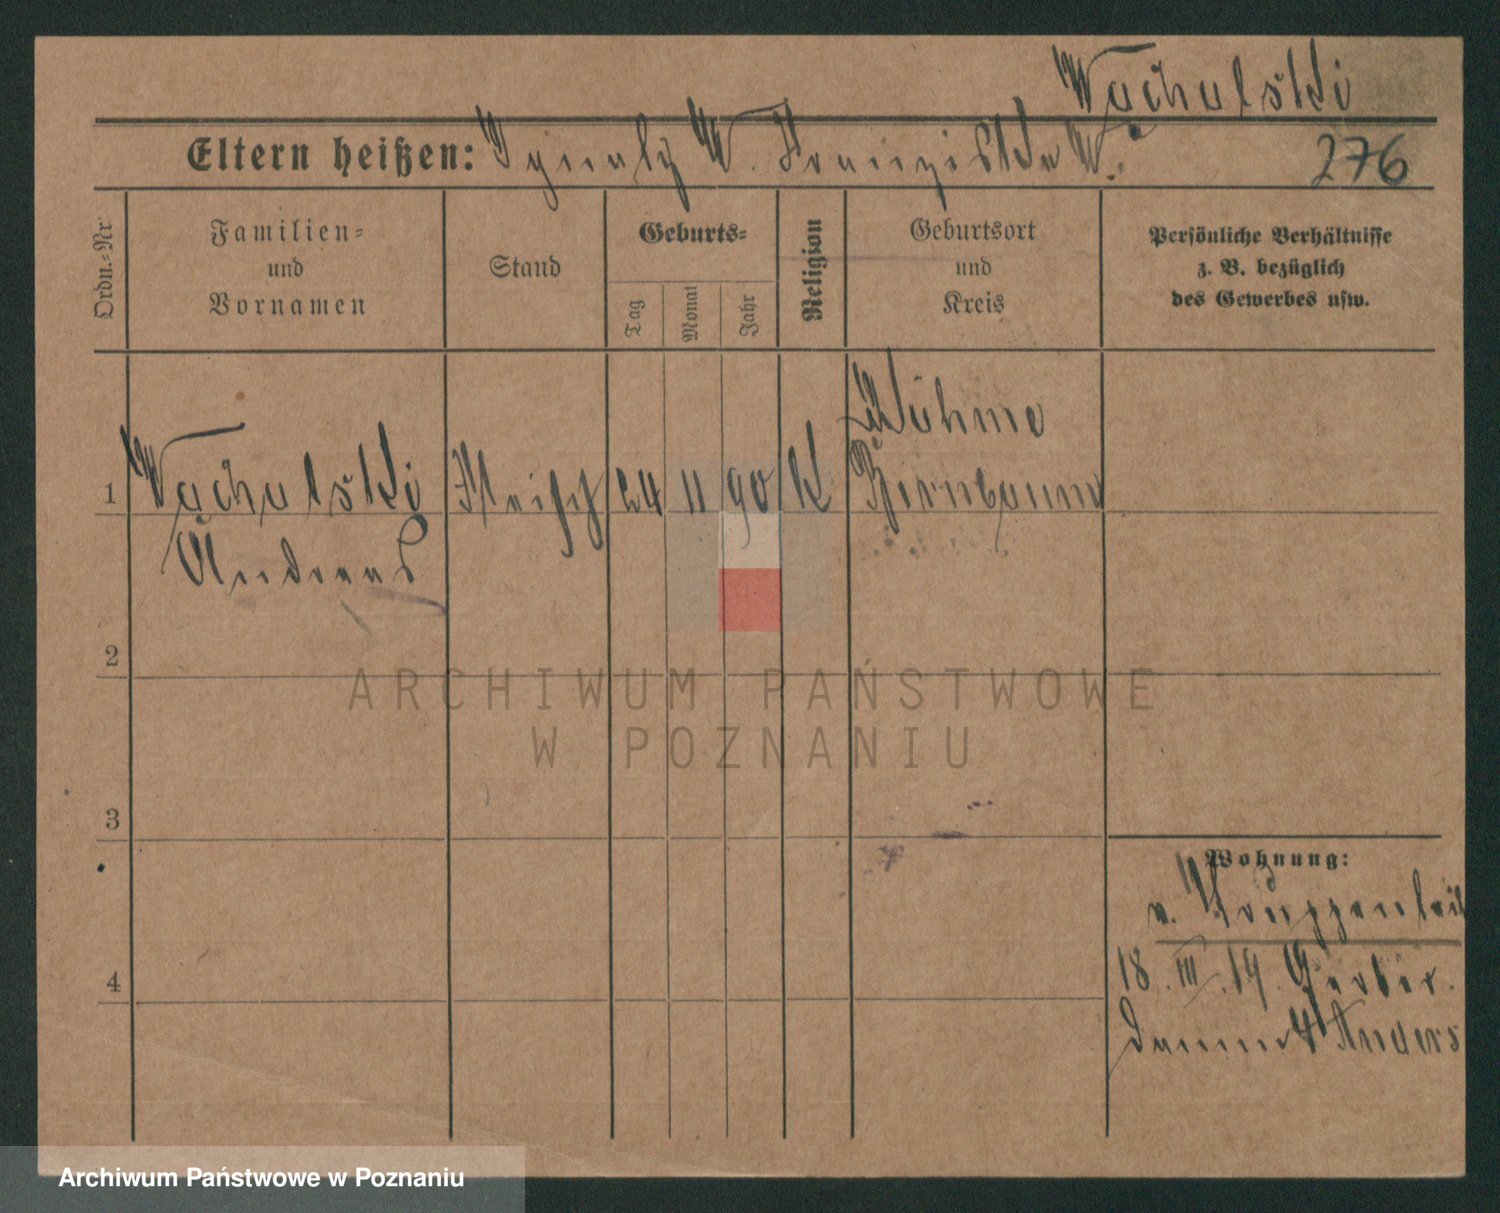 Wachalski
Eltern heißen: Ignatz W. Franziska W.
276
Ordn.-Nr.
Familien-
und
Vornamen
Stand
Geburts-
Tag
Monat
Jahr
Religion
Geburtsort
und
Kreis
Persönliche Verhältnisse
z. B. bezüglich
des Gewerbes usw.
1
Wachalski
Andreas
Fleisch
24
11
90
K
Birnbaum
2
3
4
Wohnung:
v. Truppenteil
18. III. 19. Gerber
damm 4 Anders
ARCHIWUM PAŃSTWOWE
W POZNANIU
Archiwum Państwowe w Poznaniu